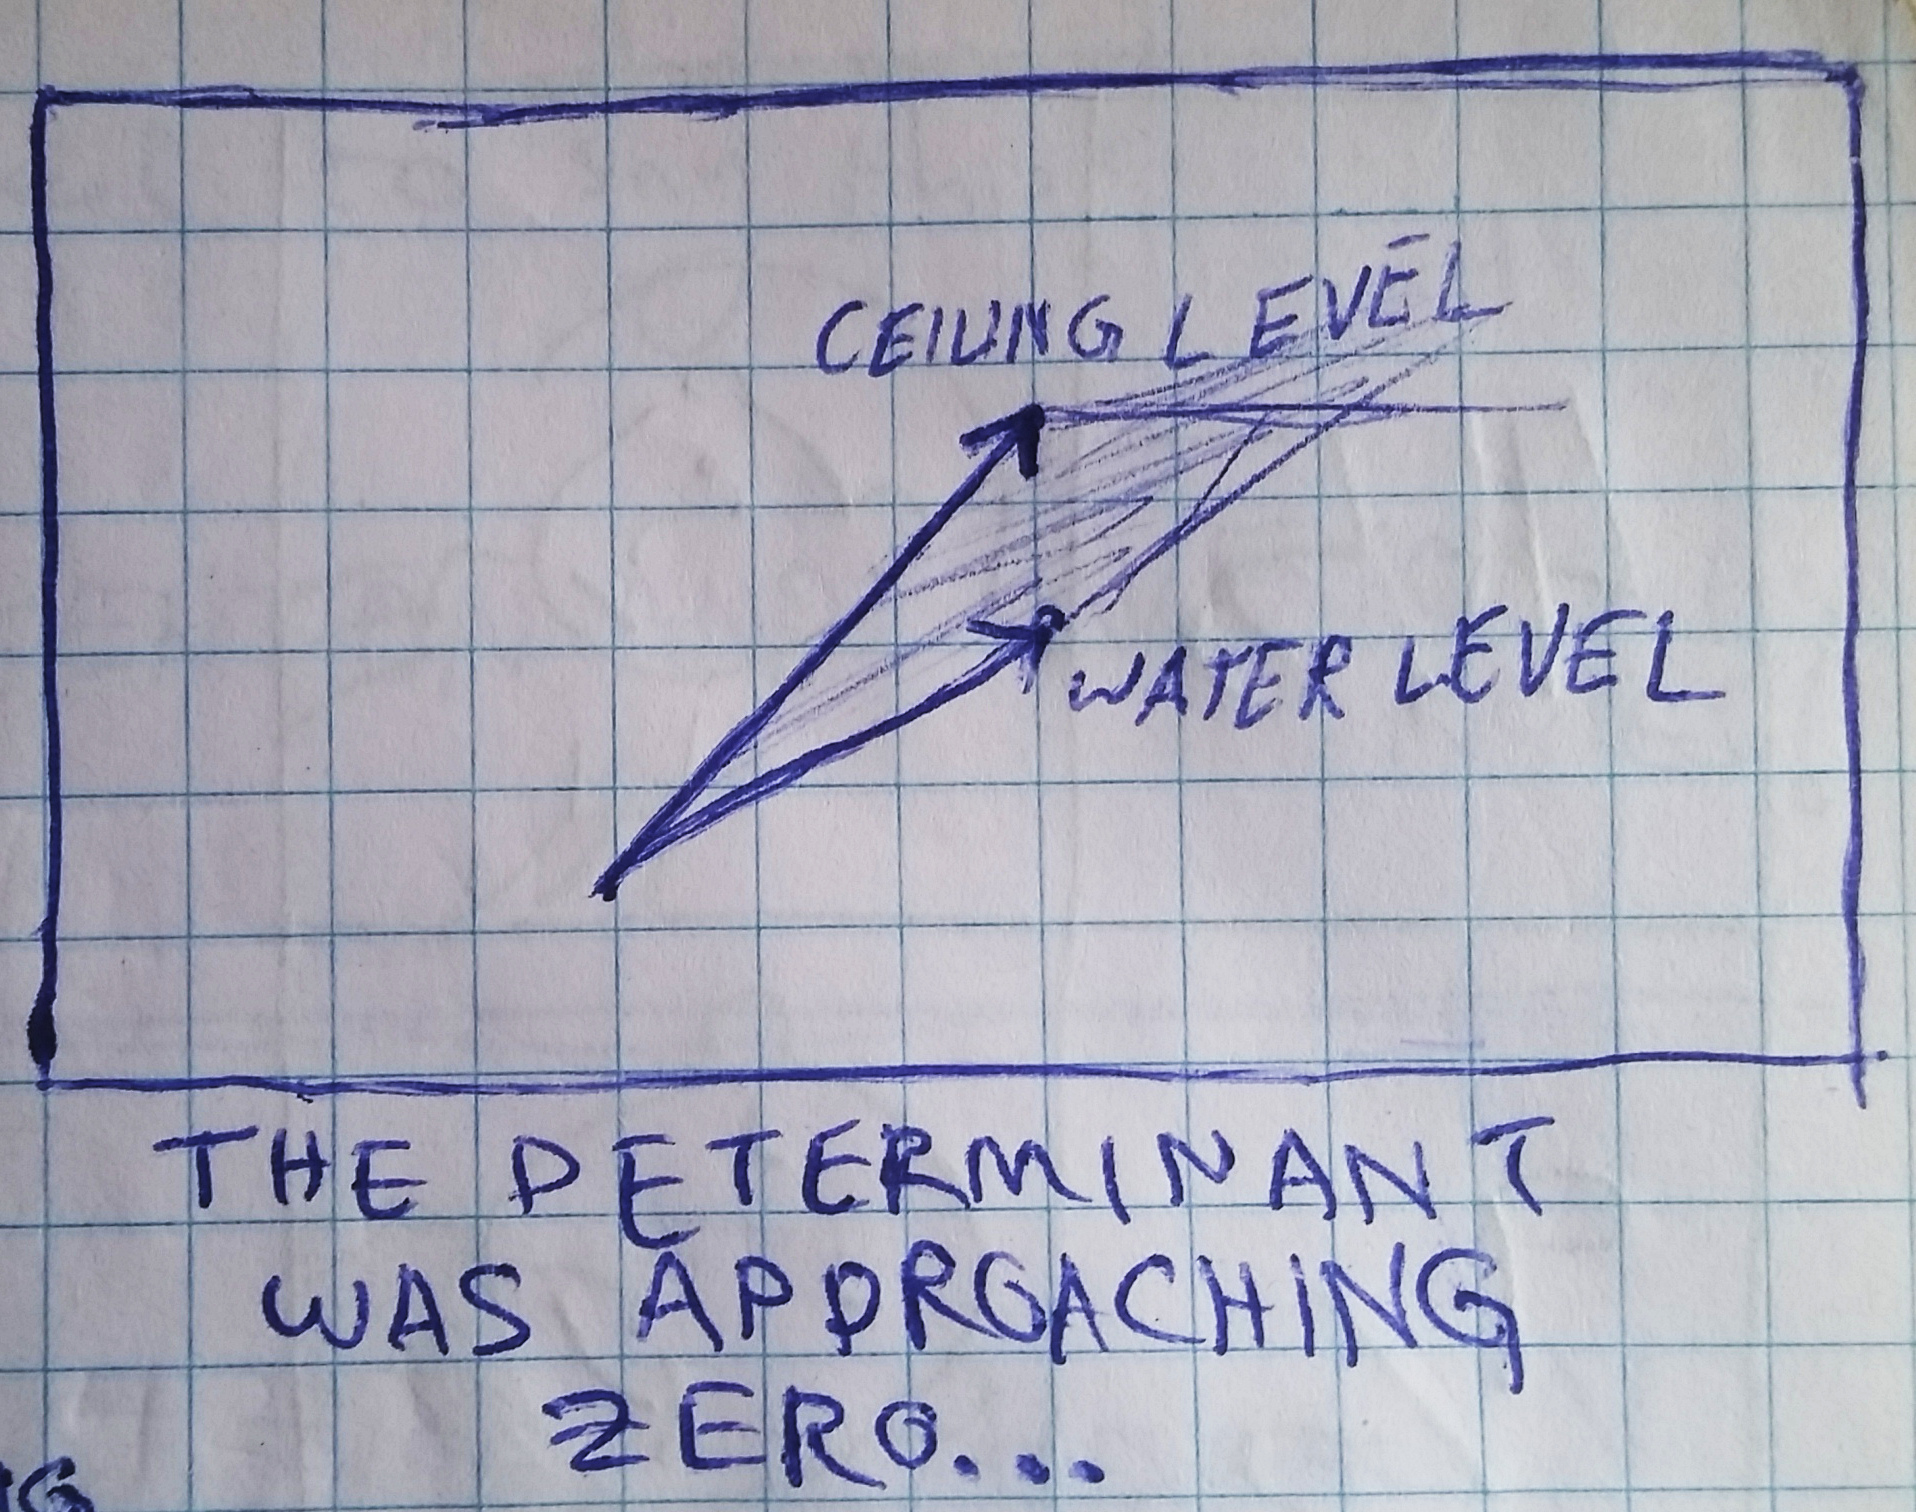 CEILING LEVEL
WATER LEVEL
THE DETERMINANT
WAS APPROACHING
ZERO...